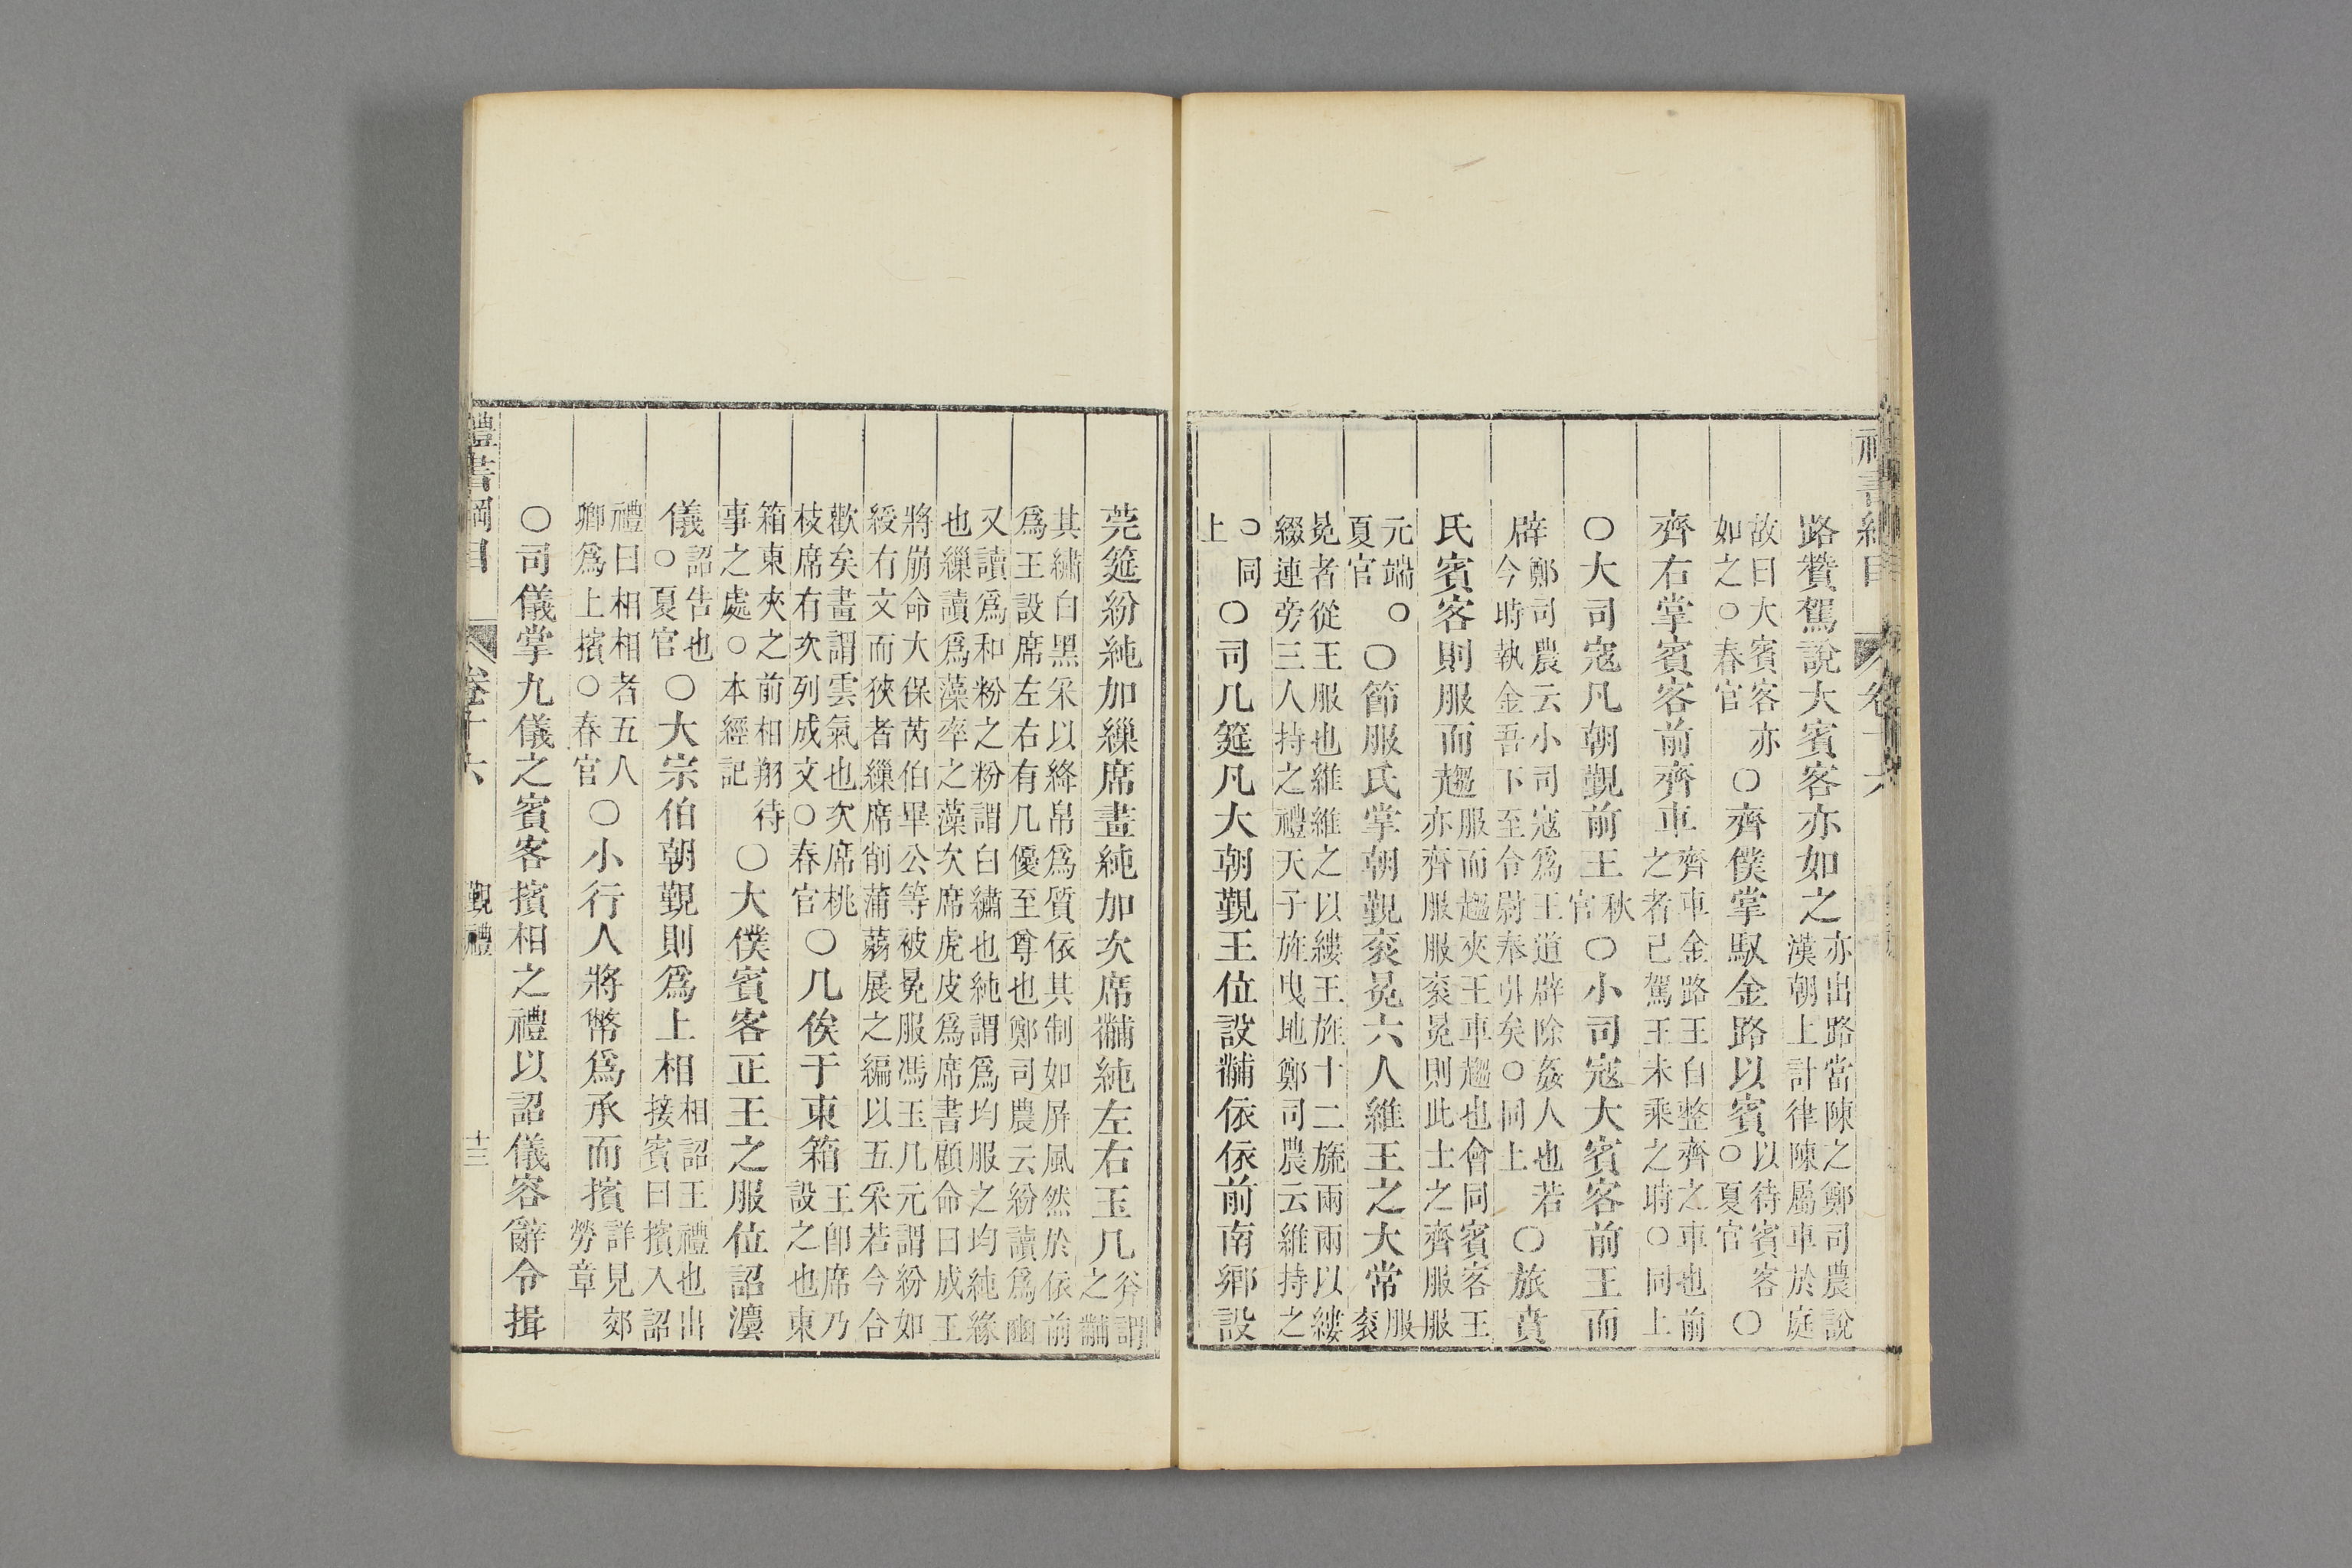 禮書綱目 卷十六
路贊駕說大賓客亦如之亦出路當陳之鄭司農說漢朝上計律陳屬車於庭
故曰大賓客亦如之○春官○齊僕掌馭金路以賓以待賓客○夏官○
齊右掌賓客前齊車齊車金路王自整齊之車也前之者已駕王未乘之時○同上
○大司寇凡朝覲前王秋官○小司寇大賓客前王而
辟鄭司農云小司寇爲王道辟除姦人也若今時執金吾下至令尉奉引矣○同上○旅賁
氏賓客則服而趨服而趨夾王車趨也會同賓客王亦齊服服袞冕則此士之齊服服
元端○夏官○節服氏掌朝覲袞冕六人維王之大常服袞
冕者從王服也維維之以縷王旌十二旒兩兩以縷綴連旁三人持之禮天子旌曳地鄭司農云維持之
○同上○司几筵凡大朝覲王位設黼依依前南鄉設
莞筵紛純加繅席畫純加次席黼純左右玉几斧謂之黼
其繡白黑采以絳帛爲質依其制如屏風然於依前爲王設席左右有几優至尊也鄭司農云紛讀爲豳
又讀爲和粉之粉謂白繡也純謂爲均服之均純緣也繅讀爲藻率之藻次席虎皮爲席書顧命曰成王
將崩命大保芮伯畢公等被冕服馮玉几元謂紛如綬有文而狹者繅席削蒲蒻展之編以五采若今合
歡矣畫謂雲氣也次席桃枝席有次列成文○春官○几俟于東箱王卽席乃設之也東
箱東夾之前相翔待事之處○本經記○大僕賓客正王之服位詔灋
儀詔告也○夏官○大宗伯朝覲則爲上相相詔王禮也出接賓曰擯入詔
禮曰相相者五人卿爲上擯○春官○小行人將幣爲承而擯詳見郊勞章
○司儀掌九儀之賓客擯相之禮以詔儀容辭令揖
禮書綱目 卷十六 覲禮 十三